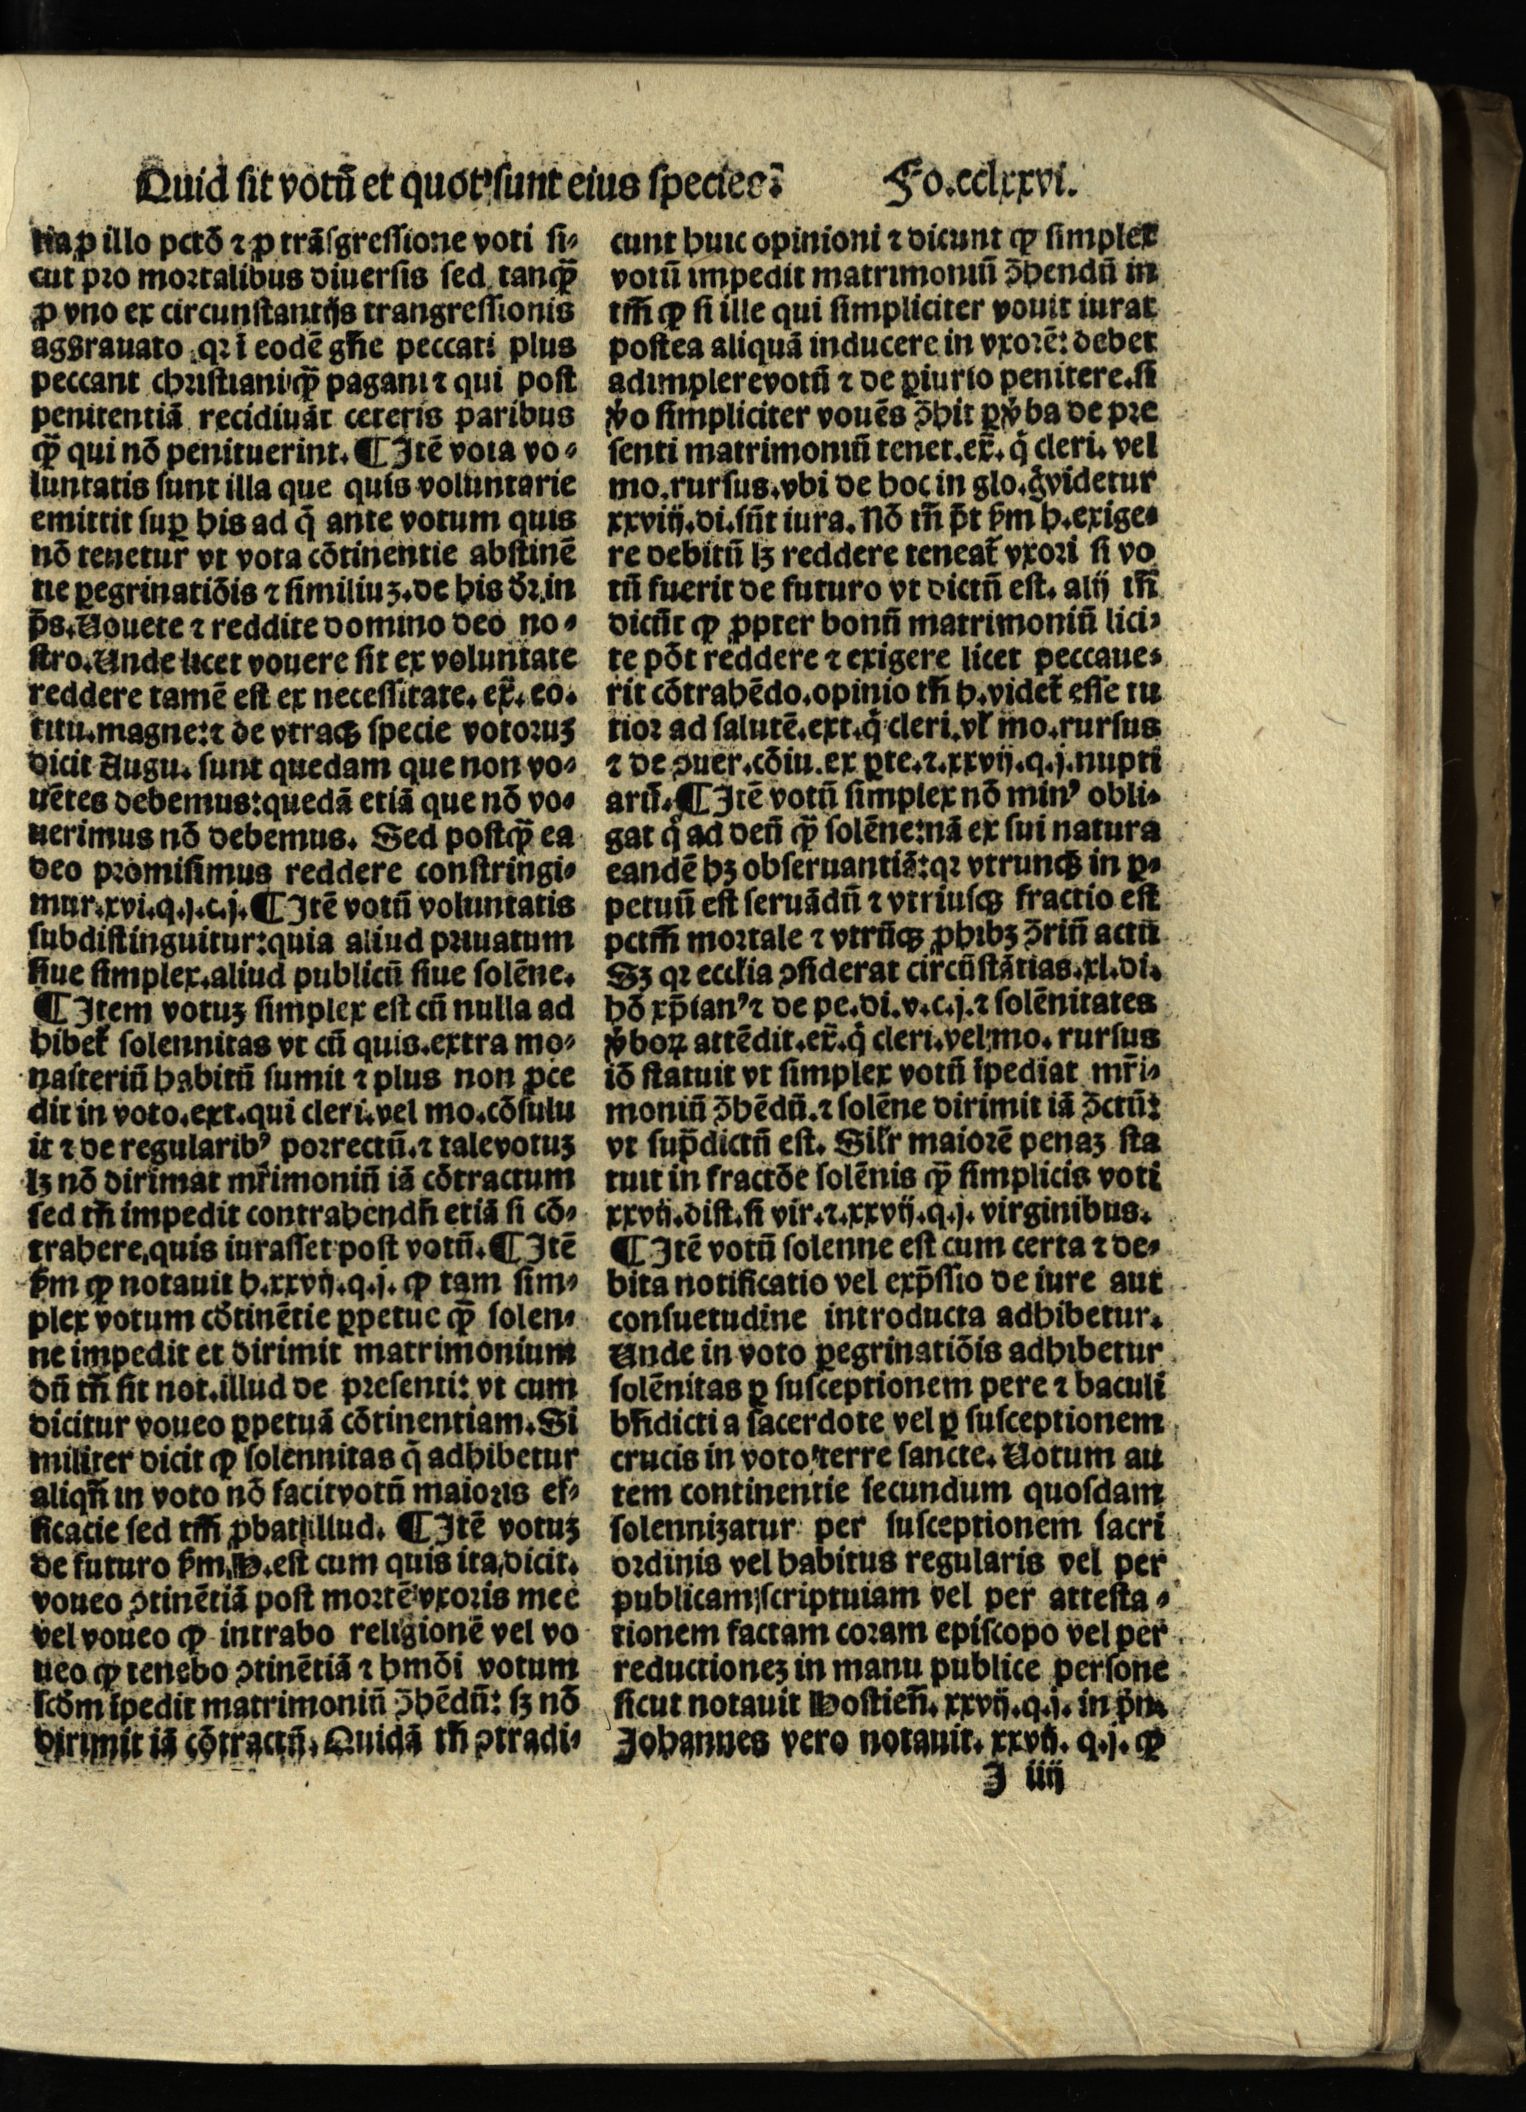 Quid sit votū et quot sunt eius species? Fo.cclxxvi.
tia ꝓ illo pctō ⁊ ꝓ trāsgressione voti si⸗
cut pro mortalibus diuersis sed tanqꝫ̄
ꝓ vno ex circunstantijs trangressionis
aggrauato qꝛ ī eodē gn̄e peccati plus
peccant christiani qꝫ̄ pagani ⁊ qui post
penitentiā recidiuāt ceteris paribus
qꝫ̄ qui nō penituerint. ¶ Itē vota vo⸗
luntatis sunt illa que quis voluntarie
emittit suꝑ his ad q̄ ante votum quis
nō tenetur vt vota cōtinentie abstinē
tie ꝑegrinatiōis ⁊ similiuꝫ. de his dr̄. in
p̄s. Vouete ⁊ reddite domino deo no⸗
stro. Unde licet vouere sit ex voluntate
reddere tamē est ex necessitate. ex̄. eo.
titu. magne: ⁊ de vtraqꝫ specie votoruꝫ
dicit Augu. sunt quedam que non vo⸗
uētes debemus: quedā etiā que nō vo⸗
uerimus nō debemus. Sed postqꝫ̄ ea
deo promisimus reddere constringi⸗
mur. xvi. q. j. c. j. ¶ Itē votū voluntatis
subdistinguitur: quia aliud priuatum
siue simplex. aliud publicū siue solēne.
¶ Item votuꝫ simplex est cū nulla ad
hibet̄ solennitas vt cū quis. extra mo⸗
nasteriū habitū sumit ⁊ plus non ꝓce
dit in voto. ext. qui cleri. vel mo. cōsulu
it ⁊ de regularibꝰ porrectū. ⁊ tale votuꝫ
lꝫ nō dirimat mr̄imoniū iā cōtractum
sed tn̄ impedit contrahendū etiā si cō⸗
trahere quis iurasset post votū. ¶ Itē
ẜm ꝙ notauit h. xxvij. q. j. ꝙ tam sim⸗
plex votum cōtinētie ꝑpetue qꝫ̄ solen⸗
ne impedit et dirimit matrimonium
dū tn̄ sit not. illud de presenti: vt cum
dicitur voueo ꝑpetuā cōtinentiam. Si
militer dicit ꝙ solennitas q̄ adhibetur
aliqn̄ in voto nō facit votū maioris ef⸗
ficacie sed tm̄ ꝓbat illud. ¶ Itē votuꝫ
de futuro ẜm. H. est cum quis ita dicit.
voueo ↄtinētiā post mortē vxoris mee
vel voueo ꝙ intrabo religionē vel vo
ueo ꝙ tenebo ↄtinētiā ⁊ hmōi votum
scd̄m īpedit matrimoniū ↄ̄hēdū: sꝫ nō
dirimit iā cōtractū. Quidā tn̄ ↄtradi⸗
cunt huic opinioni ⁊ dicunt ꝙ simplex
votū impedit matrimoniū ↄ̄hendū in
tm̄ ꝙ si ille qui simpliciter vouit iurat
postea aliquā inducere in vxorē: debet
adimplere votū ⁊ de ꝑiurio penitere. si
ꝟo simpliciter vouēs ↄ̄hit ꝑ ꝟba de pre
senti matrimoniū tenet. ex̄. q̄ cleri. vel
mo. rursus. vbi de hoc in glo. q̄ videtur
xxviij. di. sūt iura. Nō tn̄ pōt ẜm h. exige⸗
re debitū lꝫ reddere teneat̄ vxori si vo
tū fuerit de futuro vt dictū est. alij tn̄
dicūt ꝙ ꝓpter bonū matrimoniū lici⸗
te pōt reddere ⁊ exigere licet peccaue⸗
rit cōtrahēdo. opinio tn̄ h. videt̄ esse tu
tior ad salutē. ext. q̄ cleri. vl̄ mo. rursus
⁊ de ↄuer. cōiu. ex ꝑte. ⁊. xxvij. q. j. nupti
arū. ¶ Itē votū simplex nō minꝰ obli⸗
gat q̄ ad deū qꝫ̄ solēne: nā ex sui natura
eandē hꝫ obseruantiā: qꝛ vtrunqꝫ in ꝑ⸗
petuū est seruādū ⁊ vtriusqꝫ fractio est
pctm̄ mortale ⁊ vtrūqꝫ ꝓhibꝫ ↄ̄riū actū
Sꝫ qꝛ eccl̄ia ↄsiderat circūstātias. xl. di.
hō xp̄ianꝰ ⁊ de pe. di. v. c. j. ⁊ solēnitates
ꝟboꝝ attēdit. ex̄. q̄ cleri. vel mo. rursus
iō statuit vt simplex votū īpediat mr̄i⸗
moniū ↄ̄hēdū. ⁊ solēne dirimit iā ↄ̄ctū:
vt sup̄dictū est. Sil̄r maiorē penaꝫ sta
tuit in fractōe solēnis qꝫ̄ simplicis voti
xxvij. dist. si vir. ⁊. xxvij. q. j. virginibus.
¶ Itē votū solenne est cum certa ⁊ de⸗
bita notificatio vel exp̄ssio de iure aut
consuetudine introducta adhibetur.
Unde in voto ꝑegrinatiōis adhibetur
solēnitas ꝑ susceptionem pere ⁊ baculi
bn̄dicti a sacerdote vel ꝑ susceptionem
crucis in voto terre sancte. Votum au
tem continentie secundum quosdam
solennizatur per susceptionem sacri
ordinis vel habitus regularis vel per
publicam scriptuiam vel per attesta⸗
tionem factam coram episcopo vel per
reductioneꝫ in manu publice persone
sicut notauit Hostien̄. xxvij. q. j. in pn̄.
Johannes vero notauit. xxvij. q. j. ꝙ
J iiij